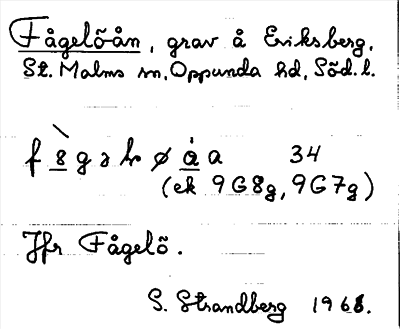 Fågelö-ån, grav å Eriksberg,
St. Malms sn, Oppunda hd, Söd. l.
f 8 g ə l ø a a 34
(ek 9G8g, 9G7g)
Jfr Fågelö.
S. Strandberg 1968.